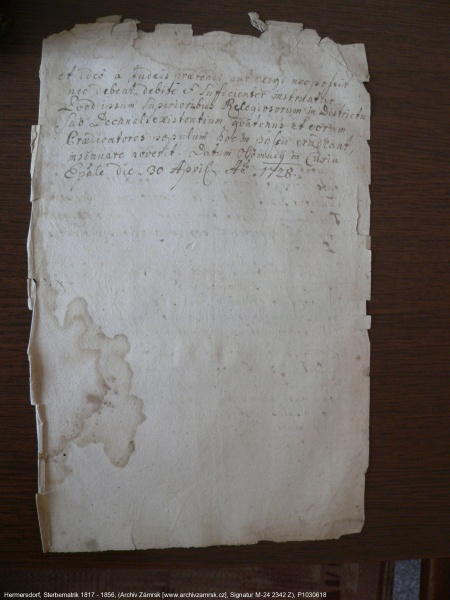 et ideo a Judeis praetendi aut exigi nec possit
nec debeat, debite et sufficienter instruatis
Quod ipsum Superioribus Religiosorum in Districtu
sub Decanali existentium, quatenus et eorum
Praedicatores populum hoc in passu erudiant,
insinuare noveritis. Datum Olomucij in Curia
Epali die 30 April: Ao 1728.
Hermersdorf, Sterbematrik 1817 - 1856, (Archiv Zámrsk [www.archivzamrsk.cz], Signatur M-24 2342 Z), P1030618